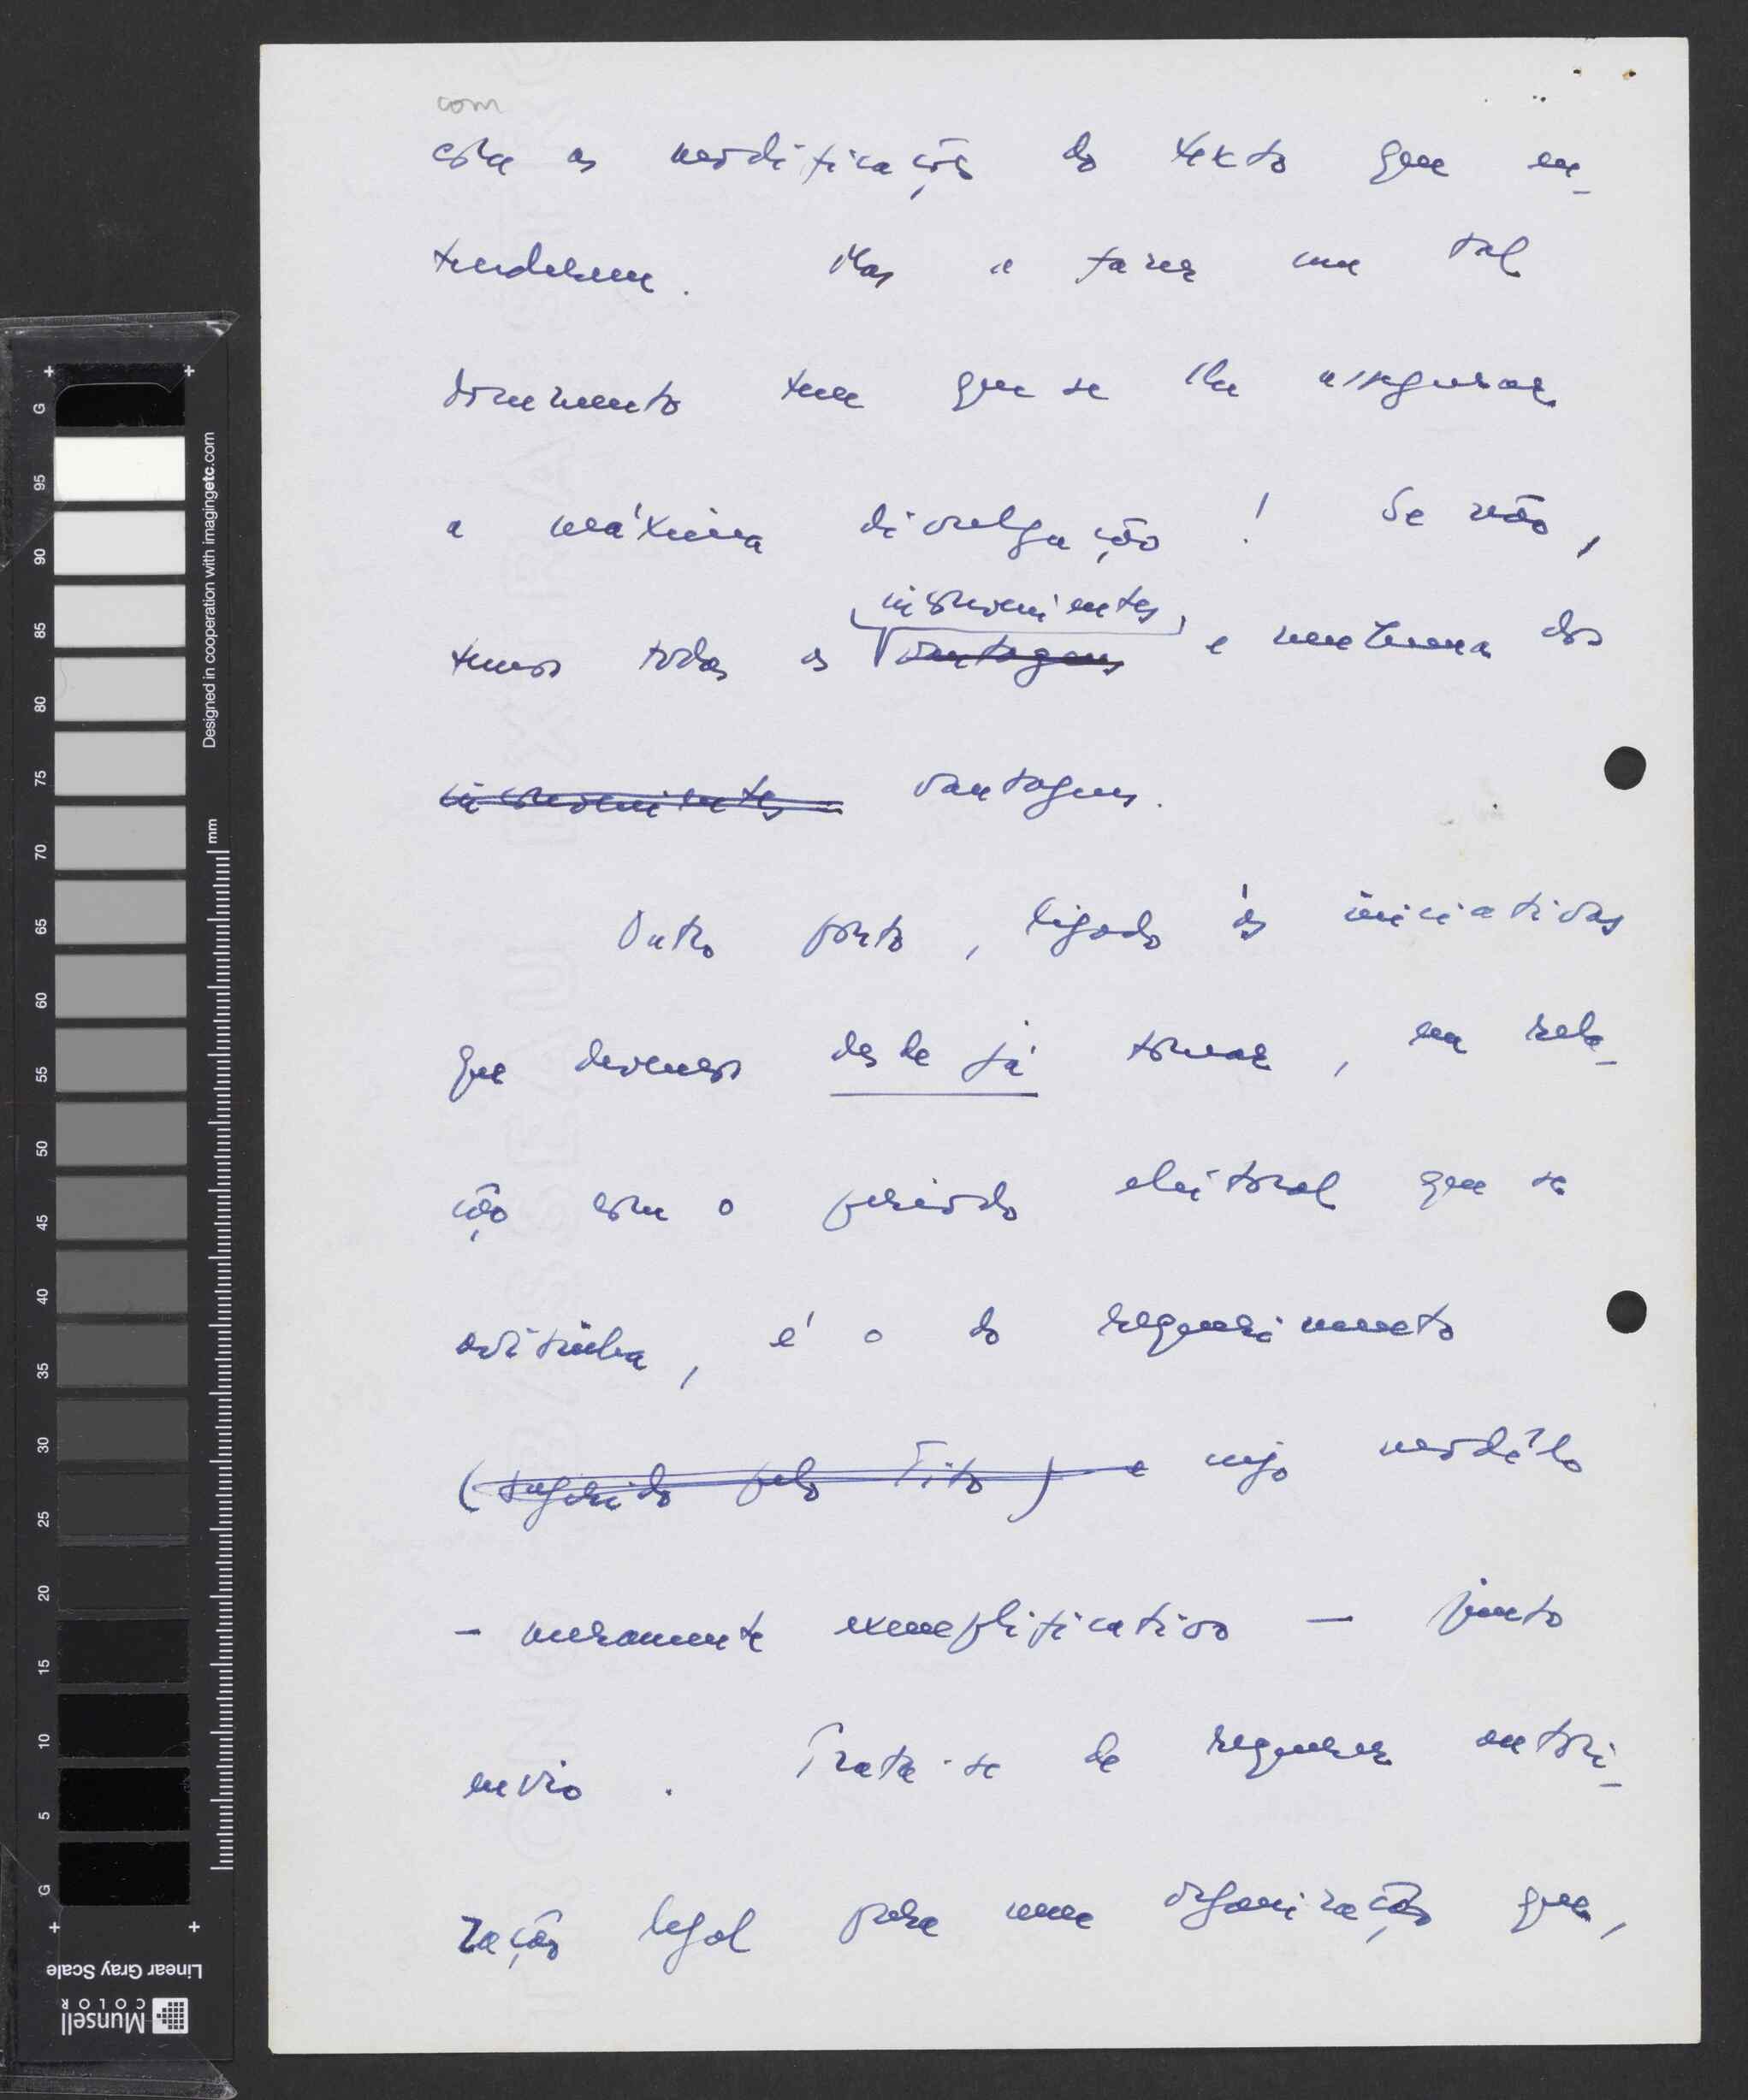 com
com as modificações do texto que en-
tenderem. Mas a fazer um tal
documento tem que se lhe assegurar
a máxima divulgação! Se não,
inconvenientes
temos todos os vantagens e nenhuma dos
inconvenientes vantagens.
Outro ponto, ligado às iniciativas
que devemos desde já tomar, em rela-
ção com o período eleitoral que se
avizinha, é o do requerimento
(sugerido pelo Tito) e cujo modêlo
- meramente exemplificativo - junto
envio. Trata-se de requerer autori-
zação legal para uma organização que,
G
95
90
85
80
75
70
65
60
55
50
45
40
35
30
25
20
15
10
5
G
mm
Designed in cooperation with imagingetc.com
Linear Gray Scale
Munsell
COLOR